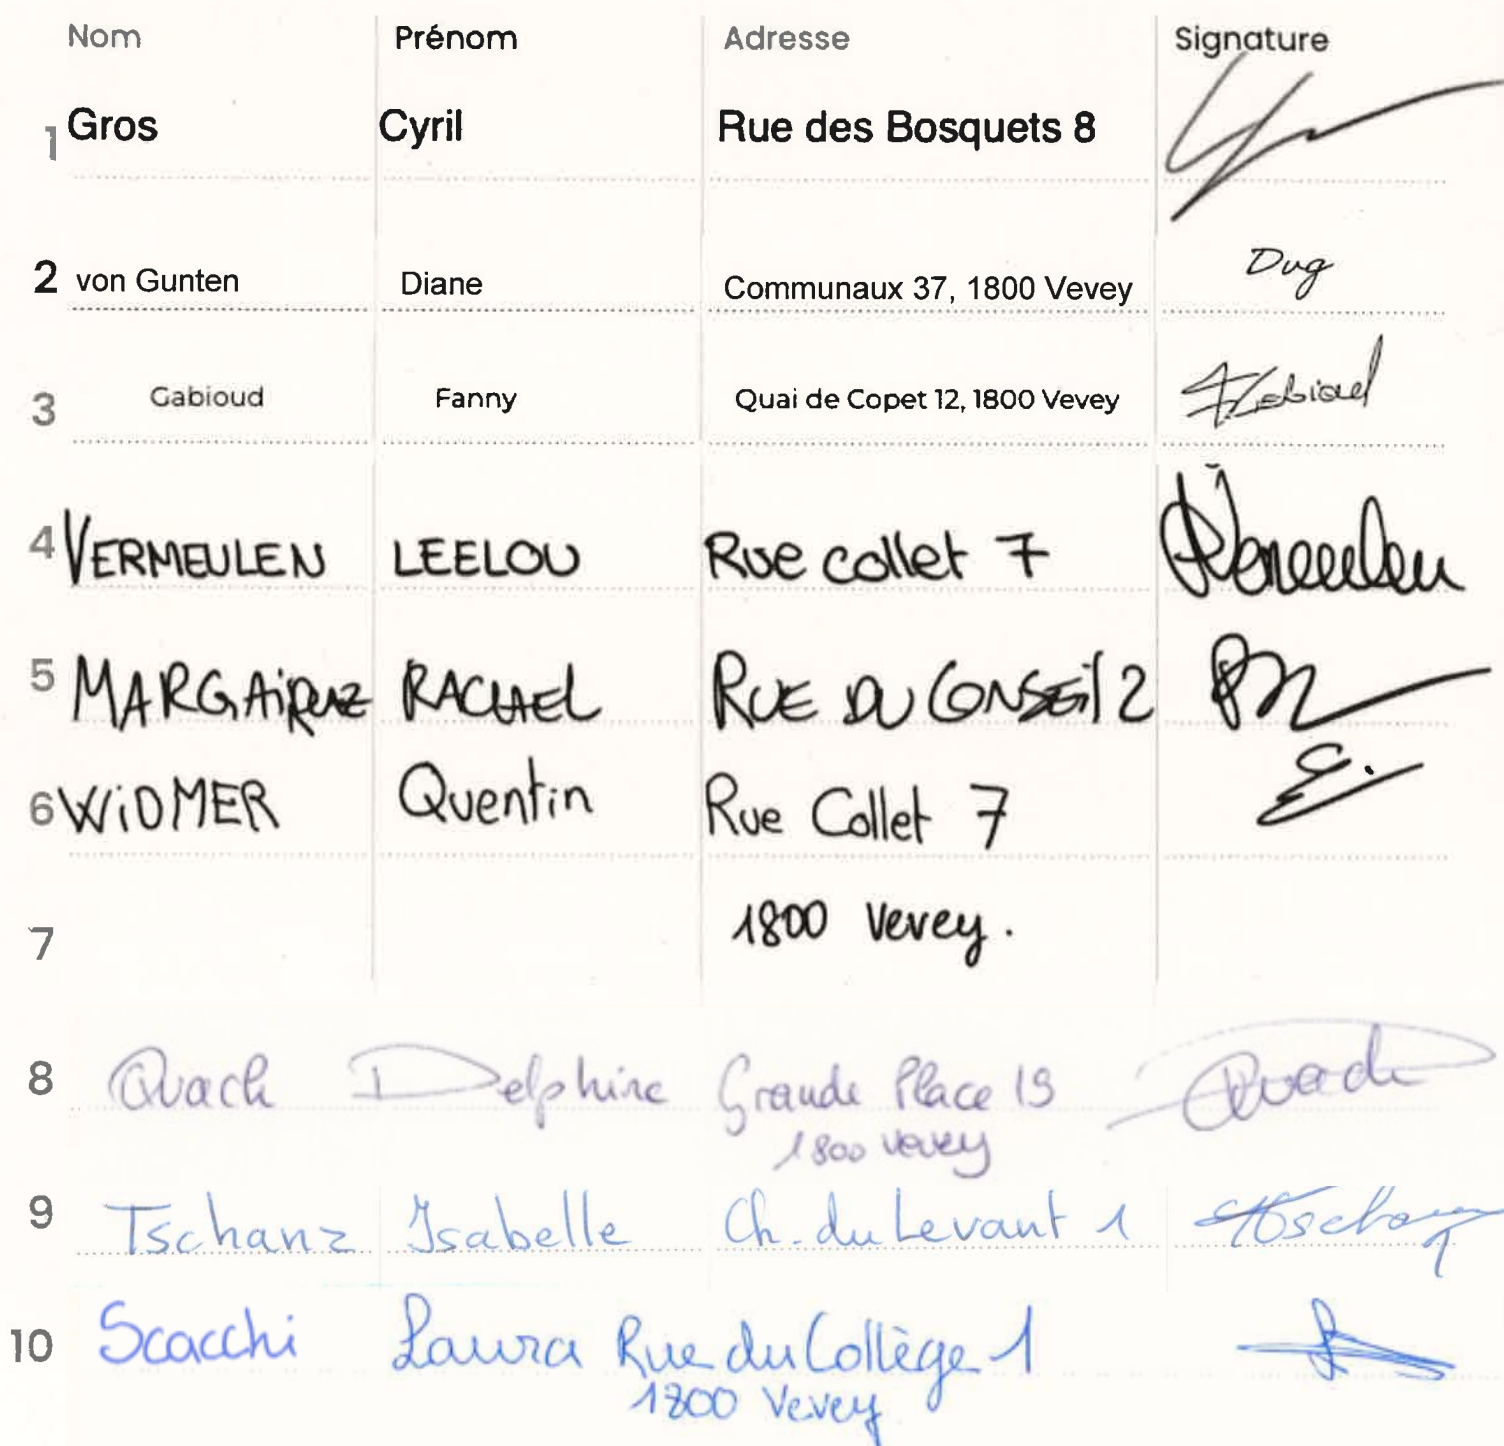 Nom Prénom Adresse Signature
1 Gros Cyril Rue des Bosquets 8
2 von Gunten Diane Communaux 37, 1800 Vevey Dvg
3 Gabioud Fanny Quai de Copet 12, 1800 Vevey FGabioud
4 VERMEULEN LEELOU Rue collet 7 Vermeulen
5 MARGAIRAZ RACHAEL RUE DU CONSEIL 2
6 WIDMER Quentin Rue Collet 7
7 1800 Vevey.
8 Quach Delphine Grande Place 19 Quach
1800 Vevey
9 Tschanz Isabelle Ch. du Levant 1 Tschanz
10 Scacchi Laura Rue du Collège 1
1800 Vevey